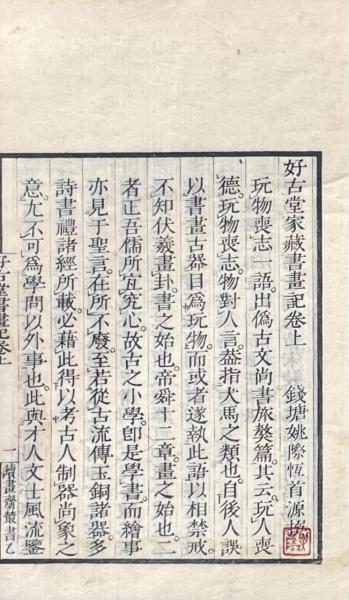 好古堂家藏書畫記卷上
錢塘姚際恆首源撰
玩物喪志一語。出僞古文尚書旅獒篇。其云。玩人喪
德。玩物喪志。物對人言。葢指犬馬之類也。自後人誤
以書畫古器目爲玩物。而或者遂執此語以相禁戒。
不知伏羲畫卦。書之始也。帝舜十二章。畫之始也。二
者正吾儒所宜究心。故古之小學。卽是學書。而繪事
亦見于聖言。在所不廢。至若從古流傳玉銅諸器。多
詩書禮諸經所載。必藉此得以考古人制器尚象之
意。尤不可爲學問以外事也。此與才人文士風流鑒
好古堂書畫記卷上
一
讀畫齋叢書乙